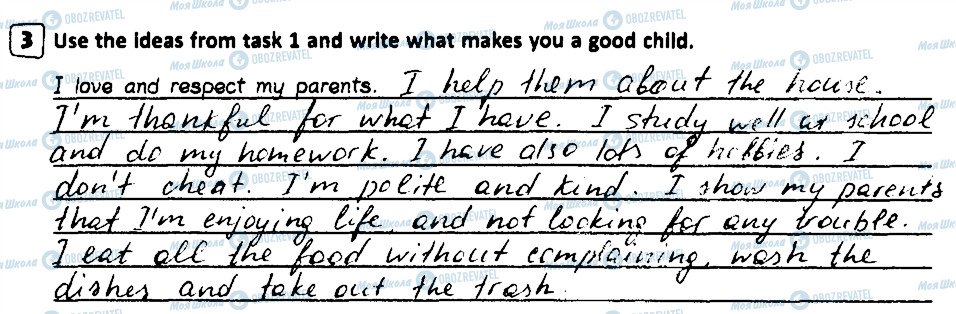 3 Use the ideas from task 1 and write what makes you a good child.
I love and respect my parents. I help them about the house.
I'm thankful for what I have. I study well at school
and do my homework. I have also lots of hobbies. I
don't cheat. I'm polite and kind. I show my parents
that I'm enjoying life and not looking for any trouble.
I eat all the food without complaining, wash the
dishes and take out the trash.